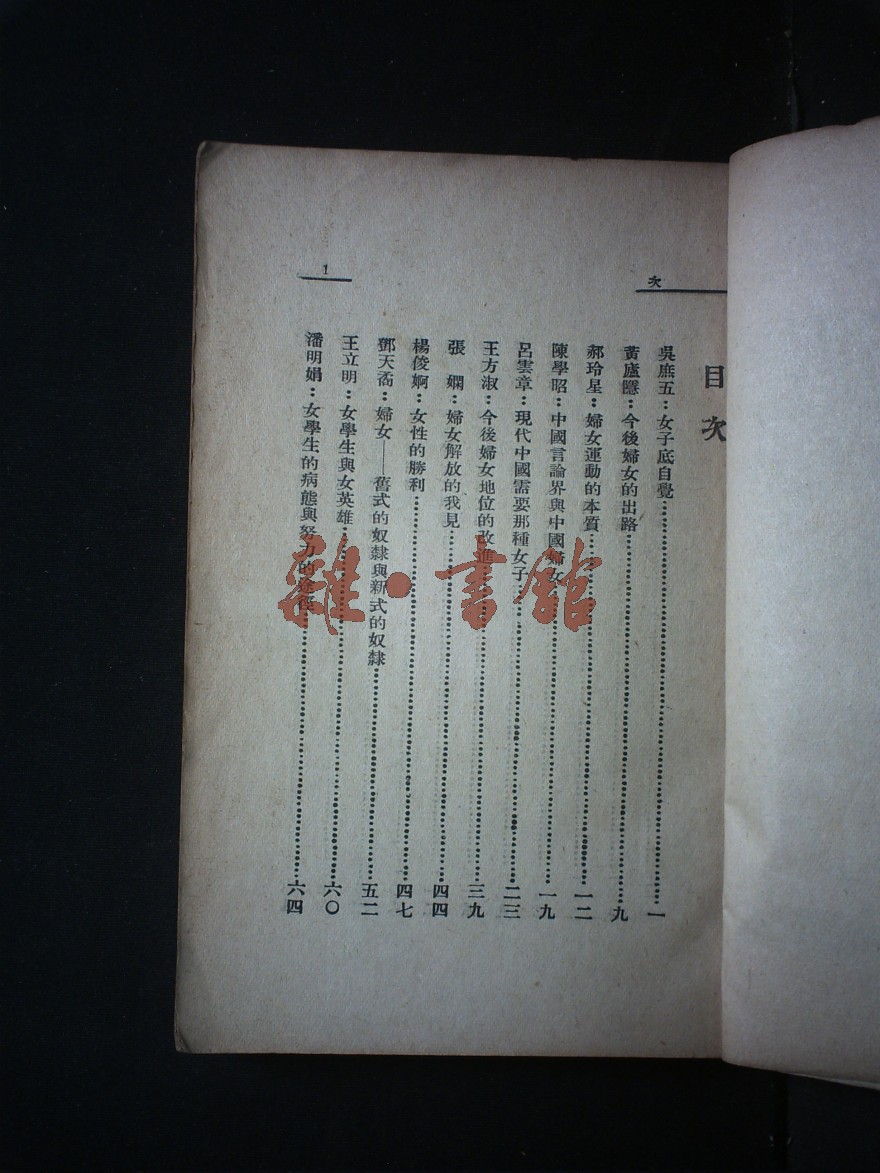 次
1
目次
吳庶五：女子底自覺……一
黃廬隱：今後婦女的出路……九
郝玲星：婦女運動的本質……一二
陳學昭：中國言論界與中國婦女……一九
呂雲章：現代中國需要那種女子……二三
王方淑：今後婦女地位的改進……三九
張　嫻：婦女解放的我見……四四
楊俊婀：女性的勝利……四七
鄧天矞：婦女——舊式的奴隸與新式的奴隸……五二
王立明：女學生與女英雄……六〇
潘明娟：女學生的病態與努力的途徑……六四
雜·書館